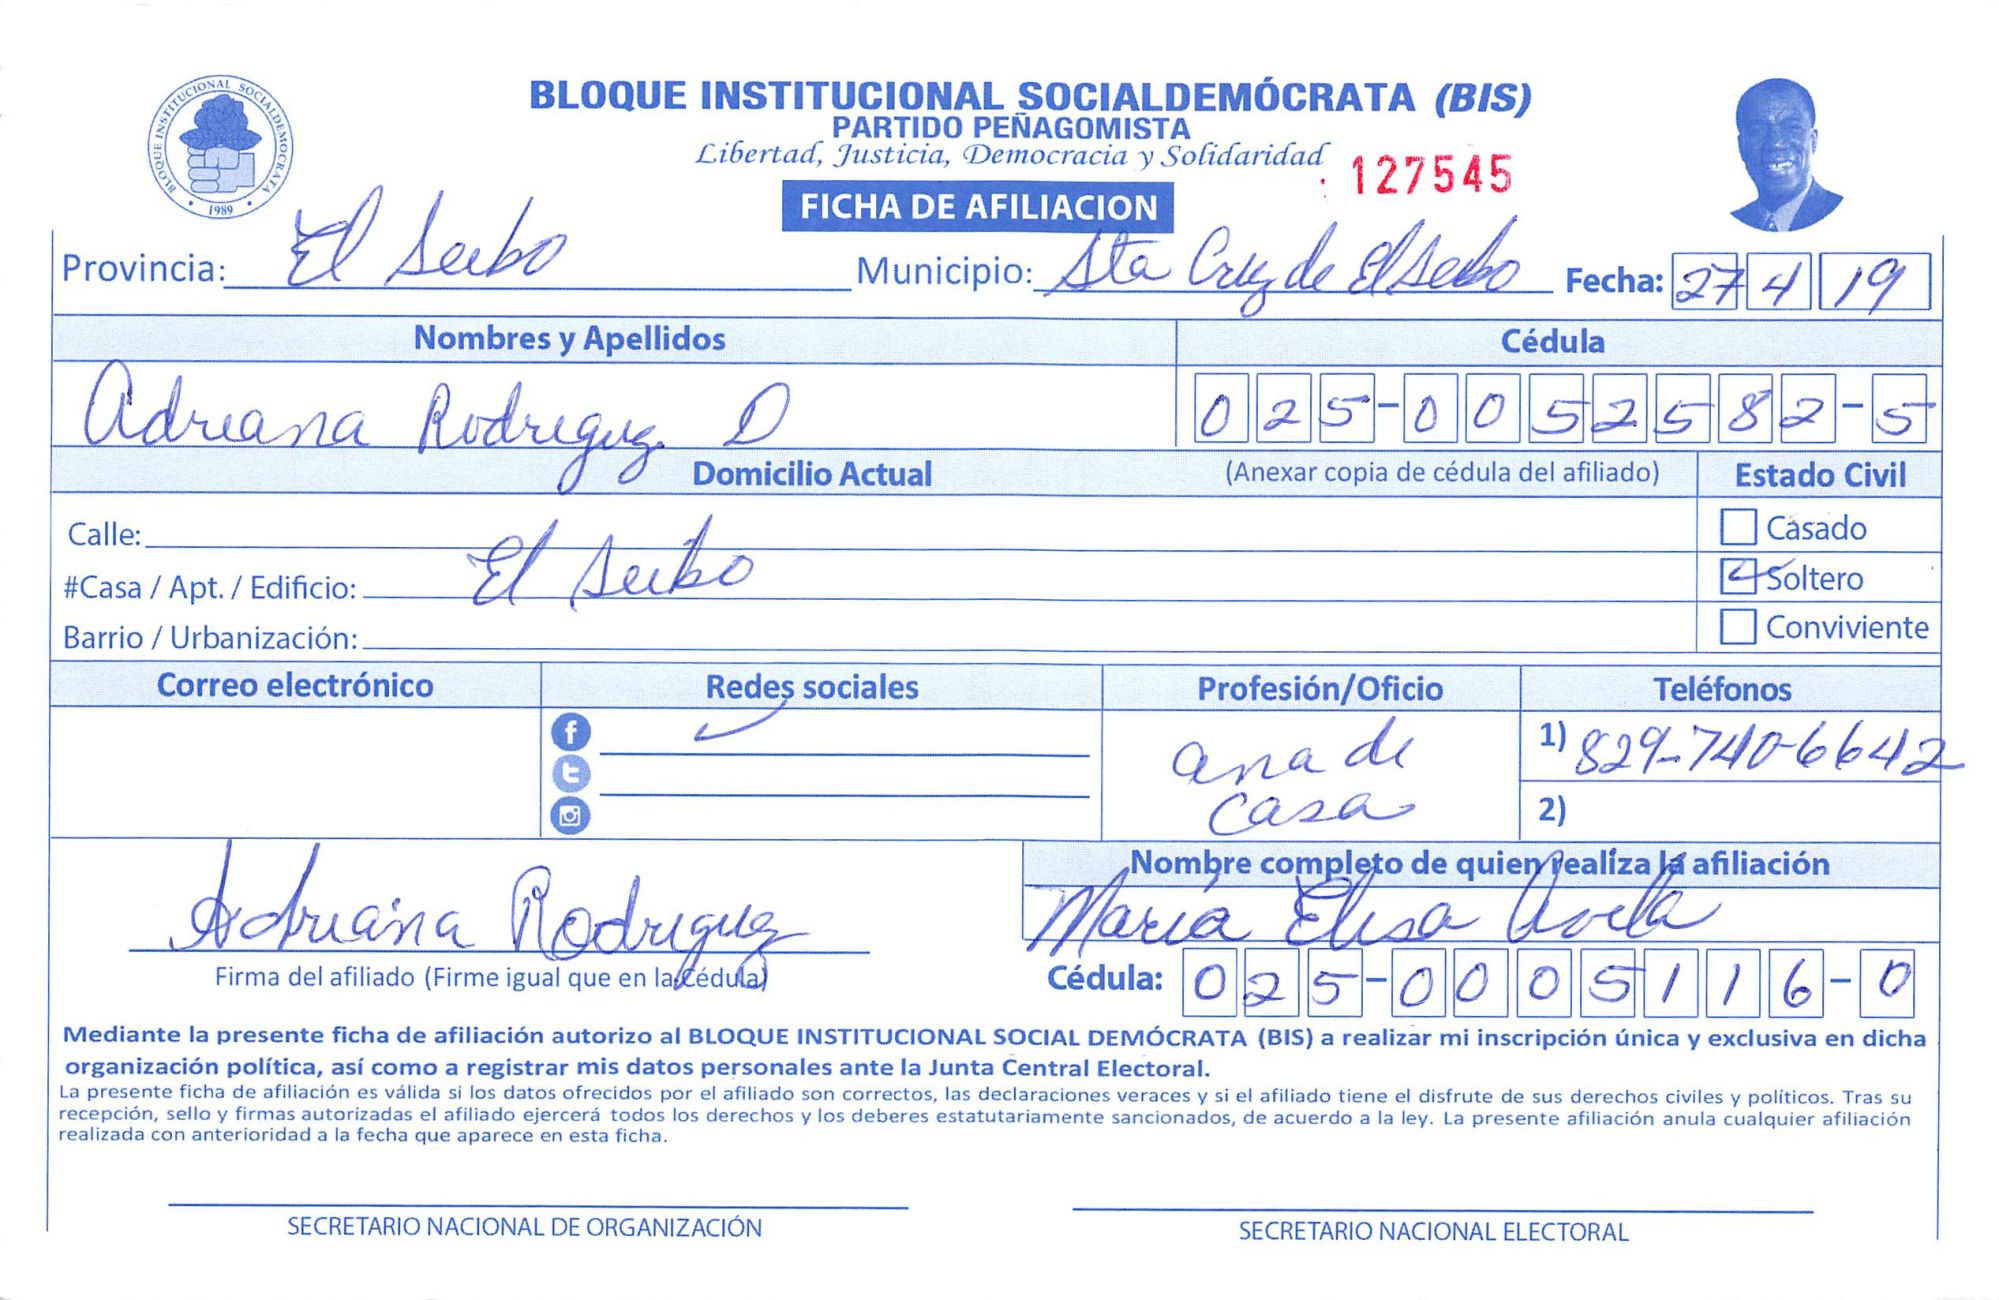 BLOQUE INSTITUCIONAL SOCIALDEMOCRATA
1989
BLOQUE INSTITUCIONAL SOCIALDEMÓCRATA (BIS)
PARTIDO PEÑAGOMISTA
Libertad, Justicia, Democracia y Solidaridad
127545
FICHA DE AFILIACION
Provincia: El Seibo Municipio: Sta Cruz de El Seibo Fecha: 27 4 19
Nombres y Apellidos Cédula
Adreana Rodriguez D 025-0052582-5
Domicilio Actual (Anexar copia de cédula del afiliado) Estado Civil
Calle: Casado
#Casa / Apt. / Edificio: El Seibo Soltero
Barrio / Urbanización: Conviviente
Correo electrónico Redes sociales Profesión/Oficio Teléfonos
ana de casa
1) 829-740-6642
2)
Nombre completo de quien realiza la afiliación
Adriana Rodriguez María Elisa Avila
Firma del afiliado (Firme igual que en la Cédula) Cédula: 025-0005116-0
Mediante la presente ficha de afiliación autorizo al BLOQUE INSTITUCIONAL SOCIAL DEMÓCRATA (BIS) a realizar mi inscripción única y exclusiva en dicha
organización política, así como a registrar mis datos personales ante la Junta Central Electoral.
La presente ficha de afiliación es válida si los datos ofrecidos por el afiliado son correctos, las declaraciones veraces y si el afiliado tiene el disfrute de sus derechos civiles y políticos. Tras su
recepción, sello y firmas autorizadas el afiliado ejercerá todos los derechos y los deberes estatutariamente sancionados, de acuerdo a la ley. La presente afiliación anula cualquier afiliación
realizada con anterioridad a la fecha que aparece en esta ficha.
SECRETARIO NACIONAL DE ORGANIZACIÓN SECRETARIO NACIONAL ELECTORAL